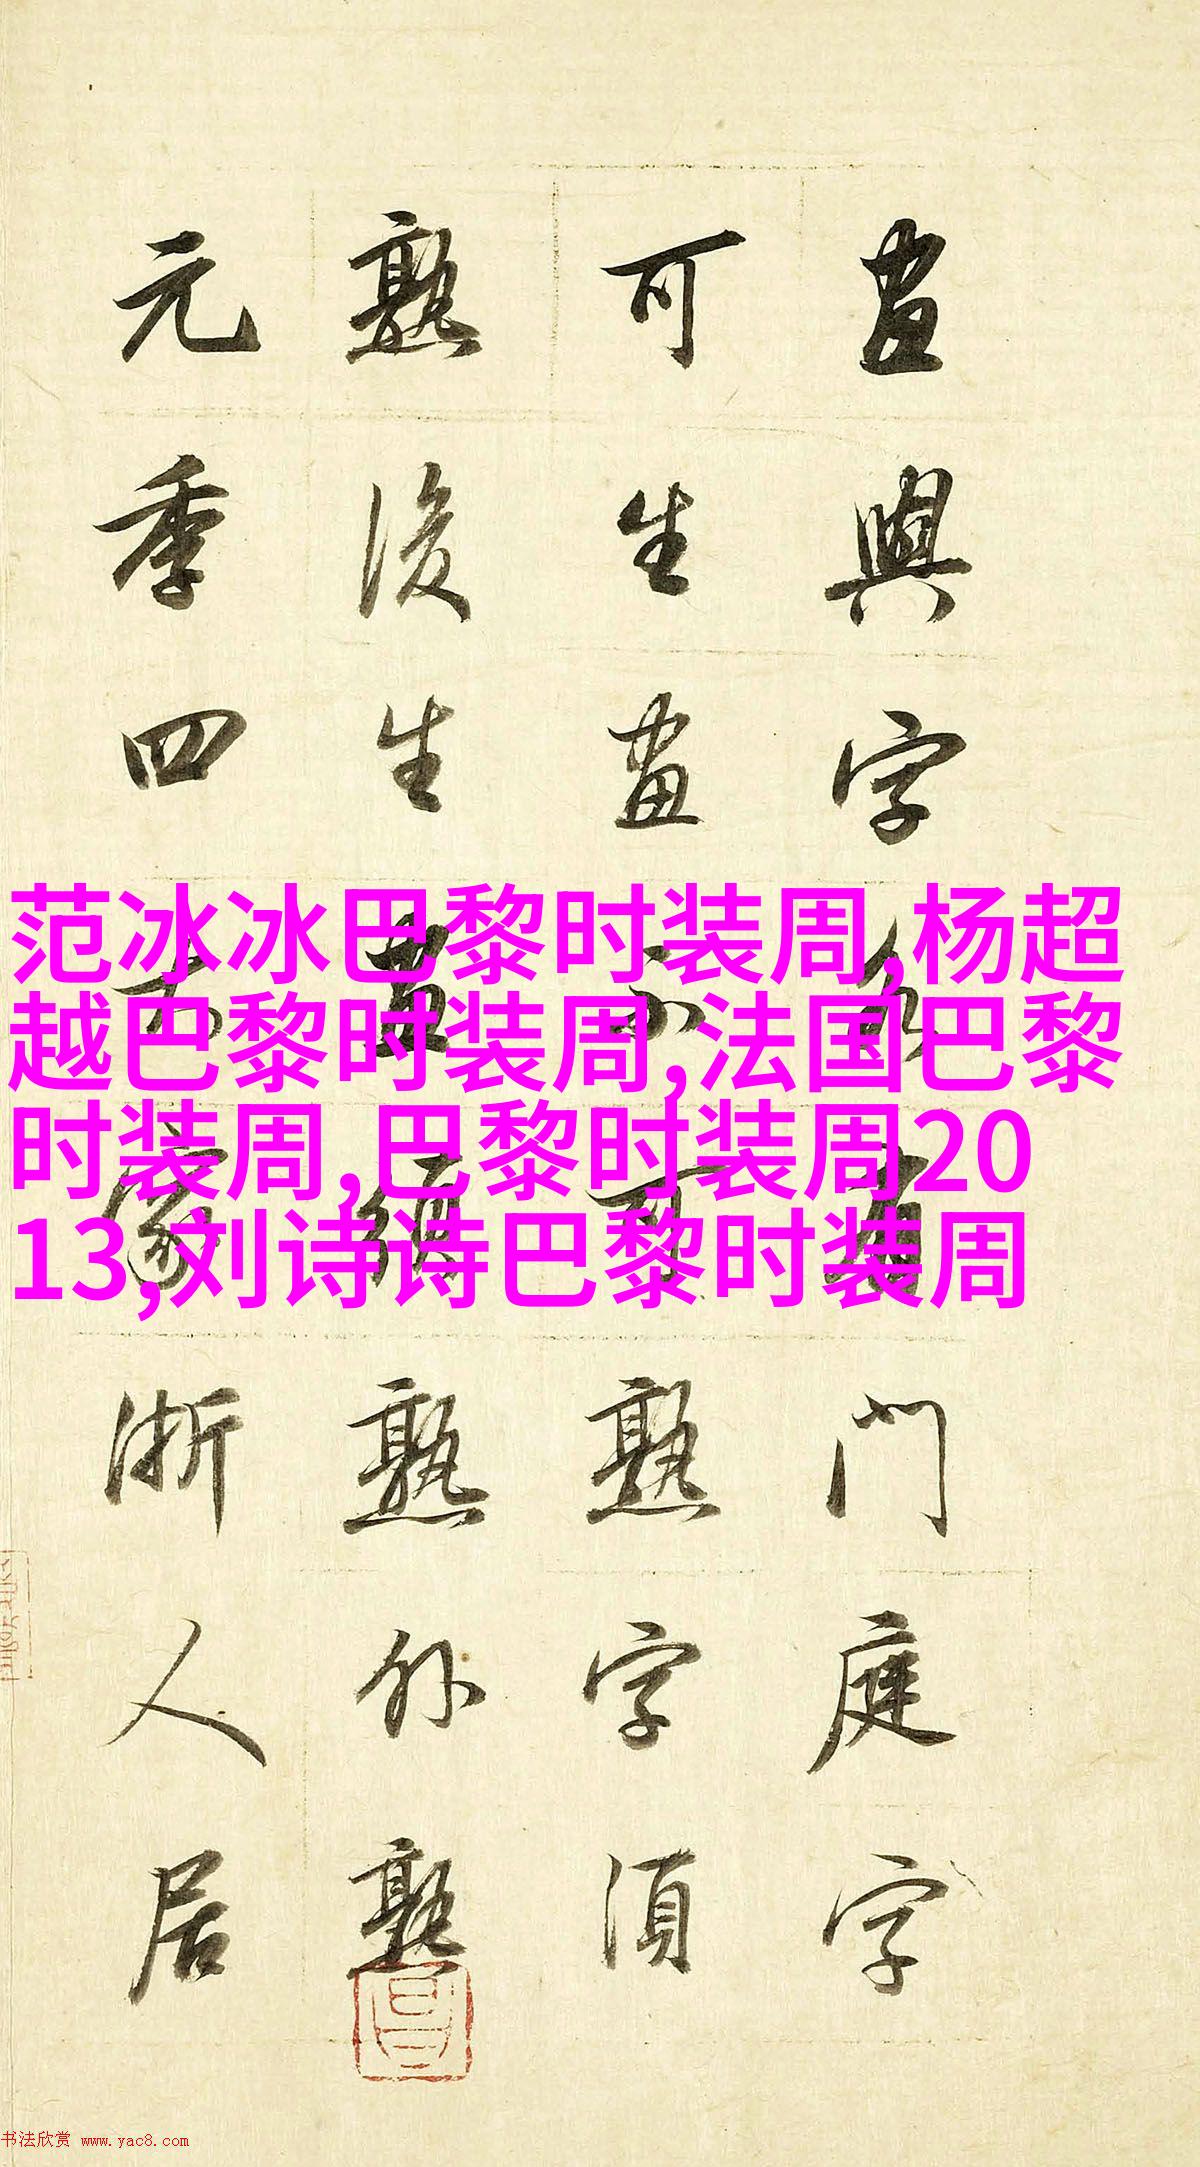 畫與字各有門庭字
可生畫不可熟字須
熟後生畫須熟外熟
元季四大家浙人居
范冰冰巴黎时装周,杨超
越巴黎时装周,法国巴黎
时装周,巴黎时装周20
13,刘诗诗巴黎时装周
书法欣赏 www.yac8.com